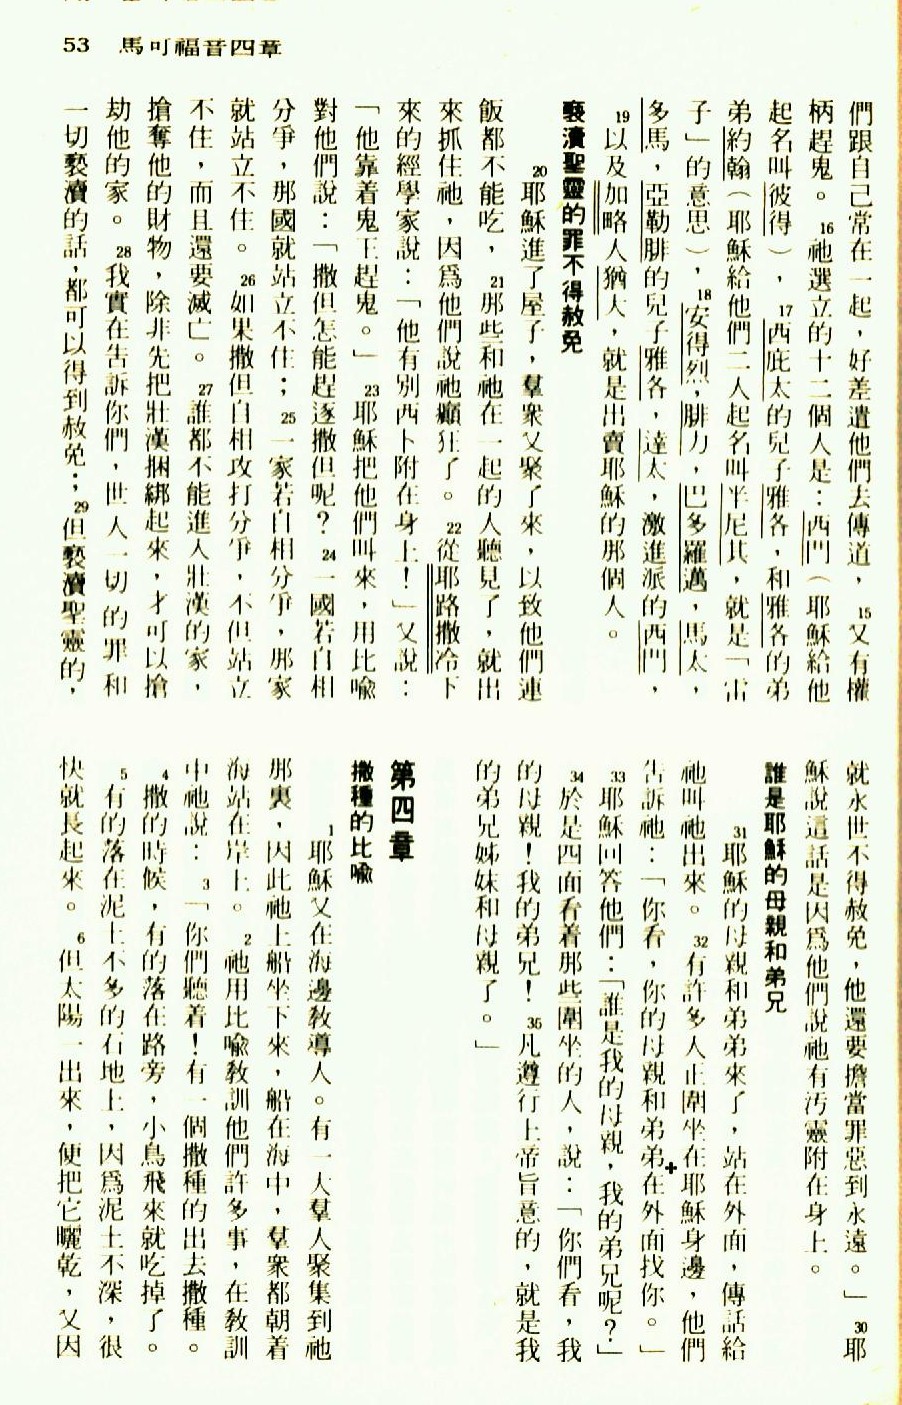 53 馬可福音四章
們跟自己常在一起，好差遣他們去傳道，15又有權
柄趕鬼。16祂選立的十二個人是：西門（耶穌給他
起名叫彼得），17西庇太的兒子雅各，和雅各的弟
弟約翰（耶穌給他們二人起名叫半尼其，就是「雷
子」的意思），18安得烈，腓力，巴多羅邁，馬太，
多馬，亞勒腓的兒子雅各，達太，激進派的西門，
19以及加略人猶大，就是出賣耶穌的那個人。
褻瀆聖靈的罪不得赦免
20耶穌進了屋子，羣衆又聚了來，以致他們連
飯都不能吃，21那些和祂在一起的人聽見了，就出
來抓住祂，因爲他們說祂癲狂了。22從耶路撒冷下
來的經學家說：「他有別西卜附在身上！」又說：
「他靠着鬼王趕鬼。」23耶穌把他們叫來，用比喩
對他們說：「撒但怎能趕逐撒但呢？24一國若自相
分爭，那國就站立不住；25一家若自相分爭，那家
就站立不住。26如果撒但自相攻打分爭，不但站立
不住，而且還要滅亡。27誰都不能進入壯漢的家，
搶奪他的財物，除非先把壯漢捆綁起來，才可以搶
劫他的家。28我實在告訴你們，世人一切的罪和
一切褻瀆的話，都可以得到赦免；29但褻瀆聖靈的，
就永世不得赦免，他還要擔當罪惡到永遠。」30耶
穌說這話是因爲他們說祂有汚靈附在身上。
誰是耶穌的母親和弟兄
31耶穌的母親和弟弟來了，站在外面，傳話給
祂叫祂出來。32有許多人正圍坐在耶穌身邊，他們
告訴祂：「你看，你的母親和弟弟在外面找你。」
33耶穌回答他們：「誰是我的母親，我的弟兄呢？」
34於是四面看着那些圍坐的人，說：「你們看，我
的母親！我的弟兄！35凡遵行上帝旨意的，就是我
的弟兄姊妹和母親了。」
第四章
撒種的比喩
1耶穌又在海邊敎導人。有一大羣人聚集到祂
那裏，因此祂上船坐下來，船在海中，羣衆都朝着
海站在岸上。2祂用比喩敎訓他們許多事，在敎訓
中祂說：3「你們聽着！有一個撒種的出去撒種。
4撒的時候，有的落在路旁，小鳥飛來就吃掉了。
5有的落在泥土不多的石地上，因爲泥土不深，很
快就長起來。6但太陽一出來，便把它曬乾，又因